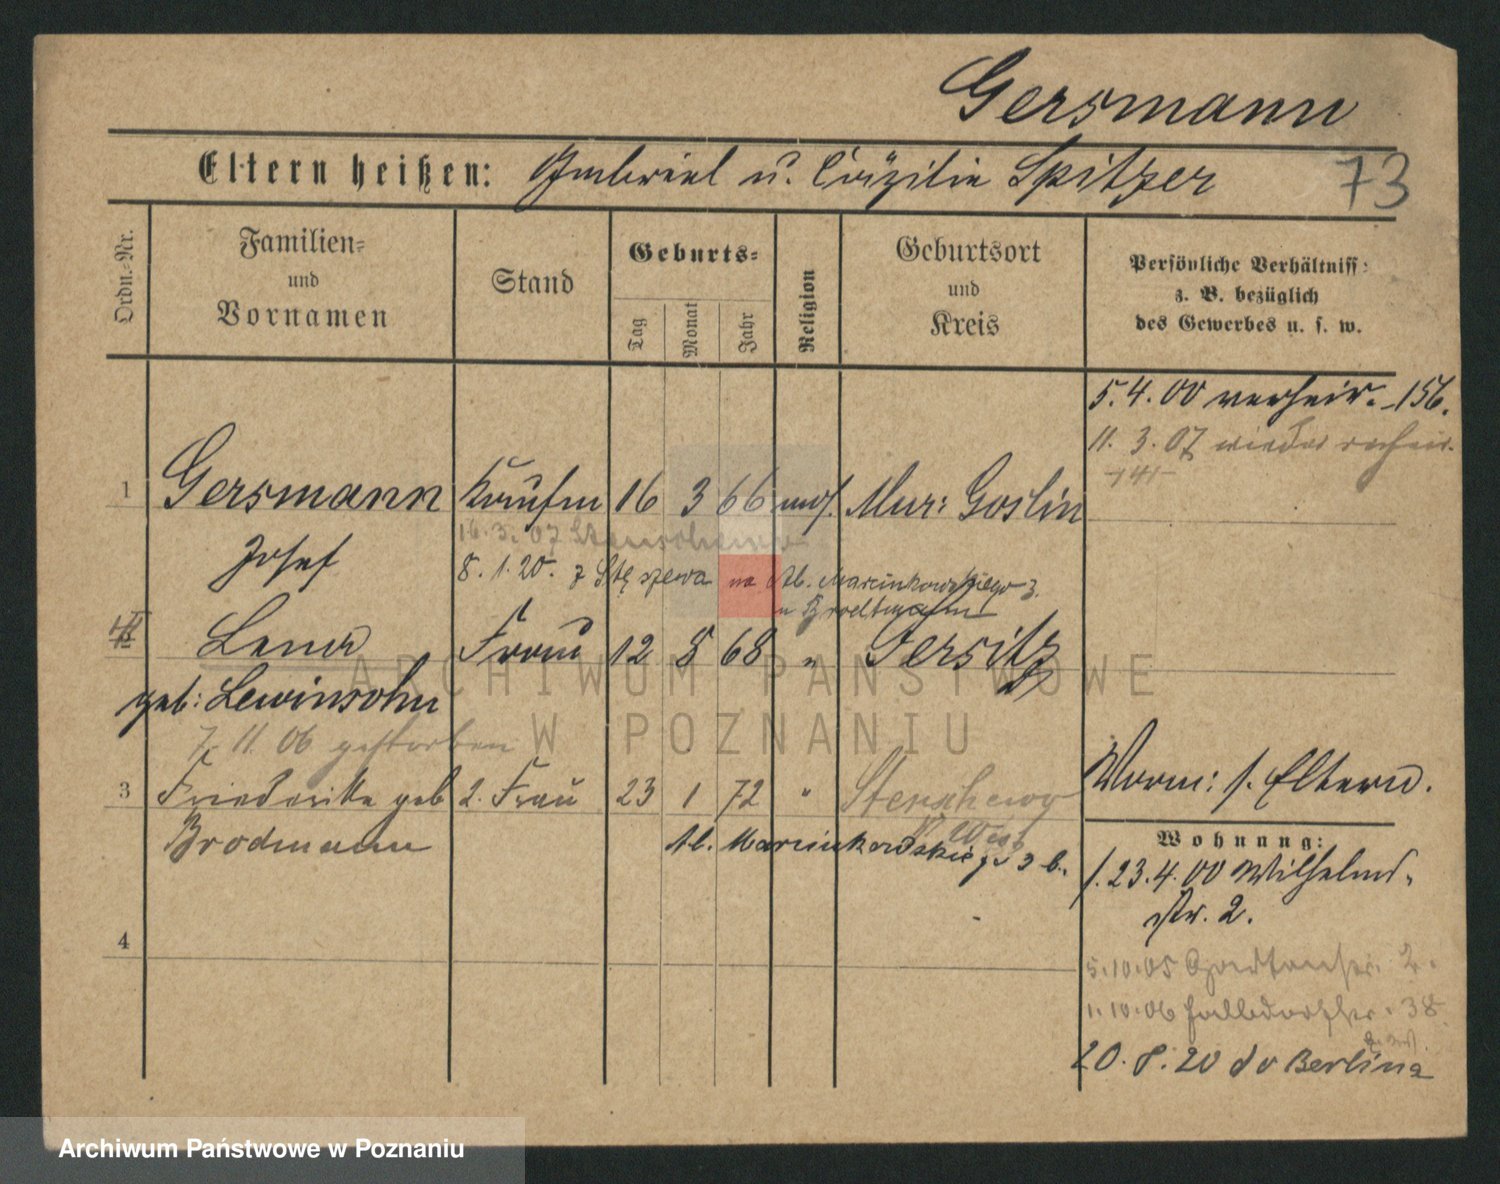 Gersmann
73
Eltern heißen: u. Cäzilie Spitzer
Ordn.-Nr.
Familien=
und
Vornamen
Stand
Geburts=
Tag
Monat
Jahr
Religion
Geburtsort
und
Kreis
Persönliche Verhältniss:
z. B. bezüglich
des Gewerbes u. s. w.
5. 4. 00 verheir. 156.
11. 3. 07 wieder
1 Gersmann Kaufm 16 3 66 mos. Mur: Goslin
16. 3. 07
Josef
8. 1. 20. z Stęszewa na Al. Marcinkowskiego 3.
Lena Frau 12 8 68 " Jersitz
geb: Lewinsohn
7. 11. 06 gestorben
3 Friederike geb 2. Frau 23 1 72 " Stenschewo
Brodmann
Kr. West
Al. Marcinkowskiego 3 b.
Worm: s. Eltern.
Wohnung:
1. 23. 4. 00 Wilhelms-
str. 2.
4
5. 10. 05 Gartenstr. 2.
1. 10. 06 38
20. 8. 20 do Berlina
ARCHIWUM PAŃSTWOWE
W POZNANIU
Archiwum Państwowe w Poznaniu